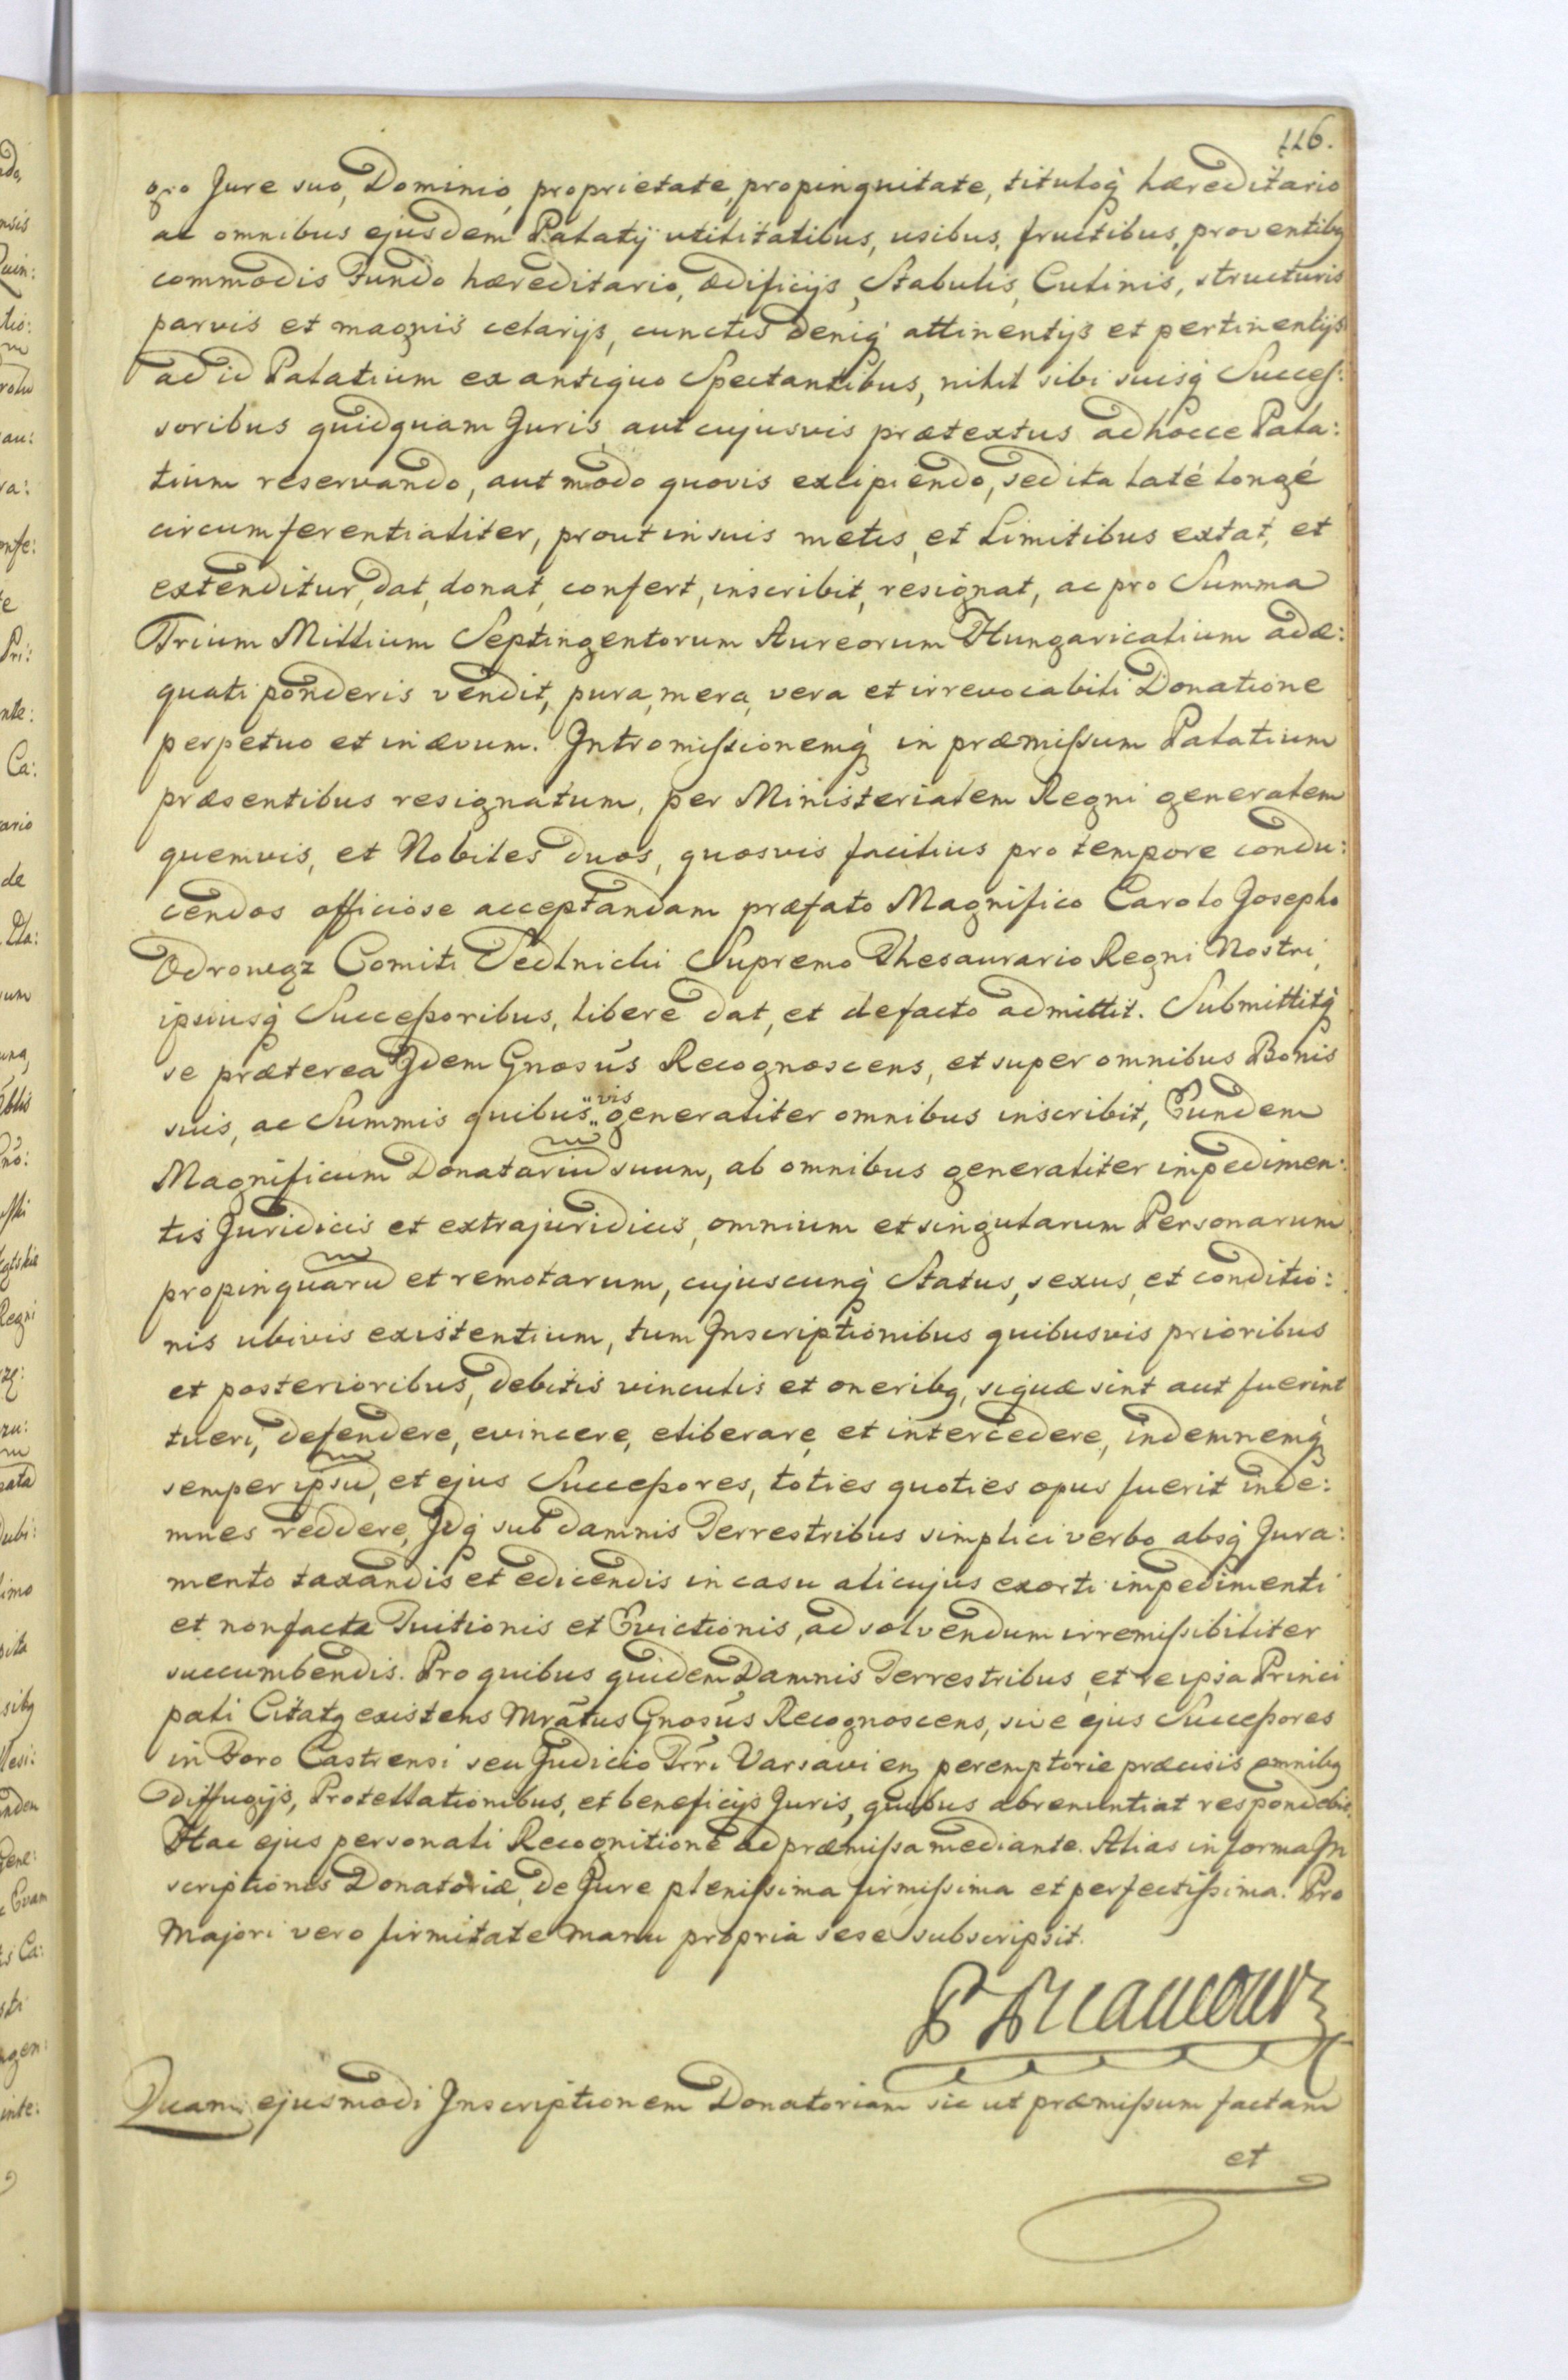 116.
gro Jure suo, Dominio, proprietate, propinquitate, tituloq̀ hæreditario
ac omnibus ejusdem Palatÿ utilitatibus, usibus, fructibus, proventibq
commodis Fundo hæreditario, ædificijs, Stabulis, Culinis, structuris
parvis et magnis celarijs, cunctis deniq̀ attinentijs et pertinentijs
ad id Palatium ex antiquo Spectantibus, nihil sibi suisq̀ Succes:
soribus quidquam Juris, aut cujusvis prætextus ad hocce Pala:
tium reservando, aut modo quovis excipiendo, sed ita laté longé
circumferentialiter, prout in suis metis, et Limitibus extat, et
extenditur, dat, donat, confert, inscribit, resignat, ac pro Summa
Trium Millium Septingentorum Aureorum Hungaricalium adæ:
quati ponderis vendit, pura, mera, vera et irrevocabili Donatione
perpetuo et in ævum. Intromissionemq̀ in præmissum Palatium
præsentibus resignatum, per Ministerialem Regni generalem
quemvis, et Nobiles duos, quosvis facilius pro tempore condu:
cendos officiose acceptandam præfato Magnifico Carolo Josepho
Odrowąz Comiti Sedlnicki Supremo Thesaurario Regni Nostri,
ipsiusq̀ Successoribus, libere dat, et defacto admittit. Submittitq̀
se præterea Idem Gnosus Recognoscens, et super omnibus Bonis
suis, ac Summis quibus "vis" generaliter omnibus inscribit, Eundem
Magnificum Donatariū suum, ab omnibus generaliter impedimen:
tis Juridicis et extrajuridicis, omnium et singularum Personarum
propinquarū et remotarum, cujuscunq̀ Status, sexus, et conditio:
nis ubivis existentium, tum Inscriptionibus quibusvis prioribus
et posterioribus, debitis vinculis et oneribq, siquæ sint aut fuerint
tueri, defendere, evincere, eliberare, et intercedere, indemnemq̀
semper ipsū, et ejus Successores, toties quoties opus fuerit inde:
mnes reddere, Idq̀ sub damnis Terrestribus simplici verbo absq̀ Jura:
mento taxandis et edicendis in casu alicujus exorti impedimenti
et non facta Tuitionis et Evictionis, ad solvendum irremissibiliter
succumbendis. Pro quibus quidem Damnis Terrestribus, et re ipsa Princi
pali Citatq existens Mratus Gnosus Recognoscens, sive ejus Successores
in Foro Castrensi seu Judicio Trri Varsavien peremptorie præcisis omnibq
Diffugijs, Protellationibus, et beneficijs Juris, quibus abrenuntiat respondebit.
Hac ejus personali Recognitione ad præmissa mediante. Alias in forma In
scriptionis Donatoriæ, de Jure plenissima firmissima et perfectissima. Pro
Majori vero firmitate Manu propria sese subscripsit.
Quam ejusmodi Inscriptionem Donatoriam sic ut præmissum factam
et